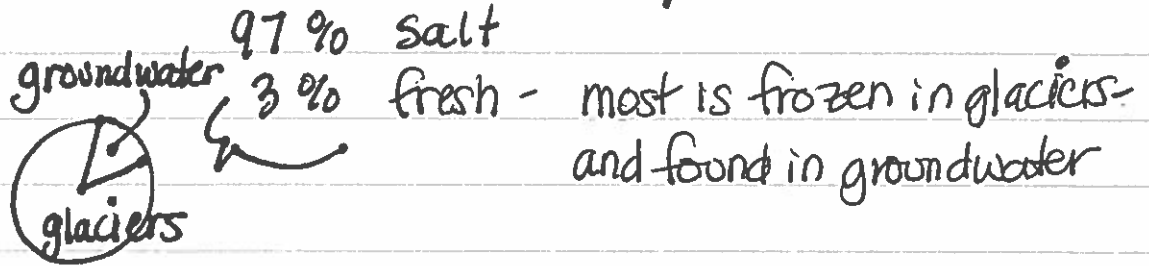 97 % salt
groundwater 3 % fresh - most is frozen in glaciers-
and found in groundwater
glaciers